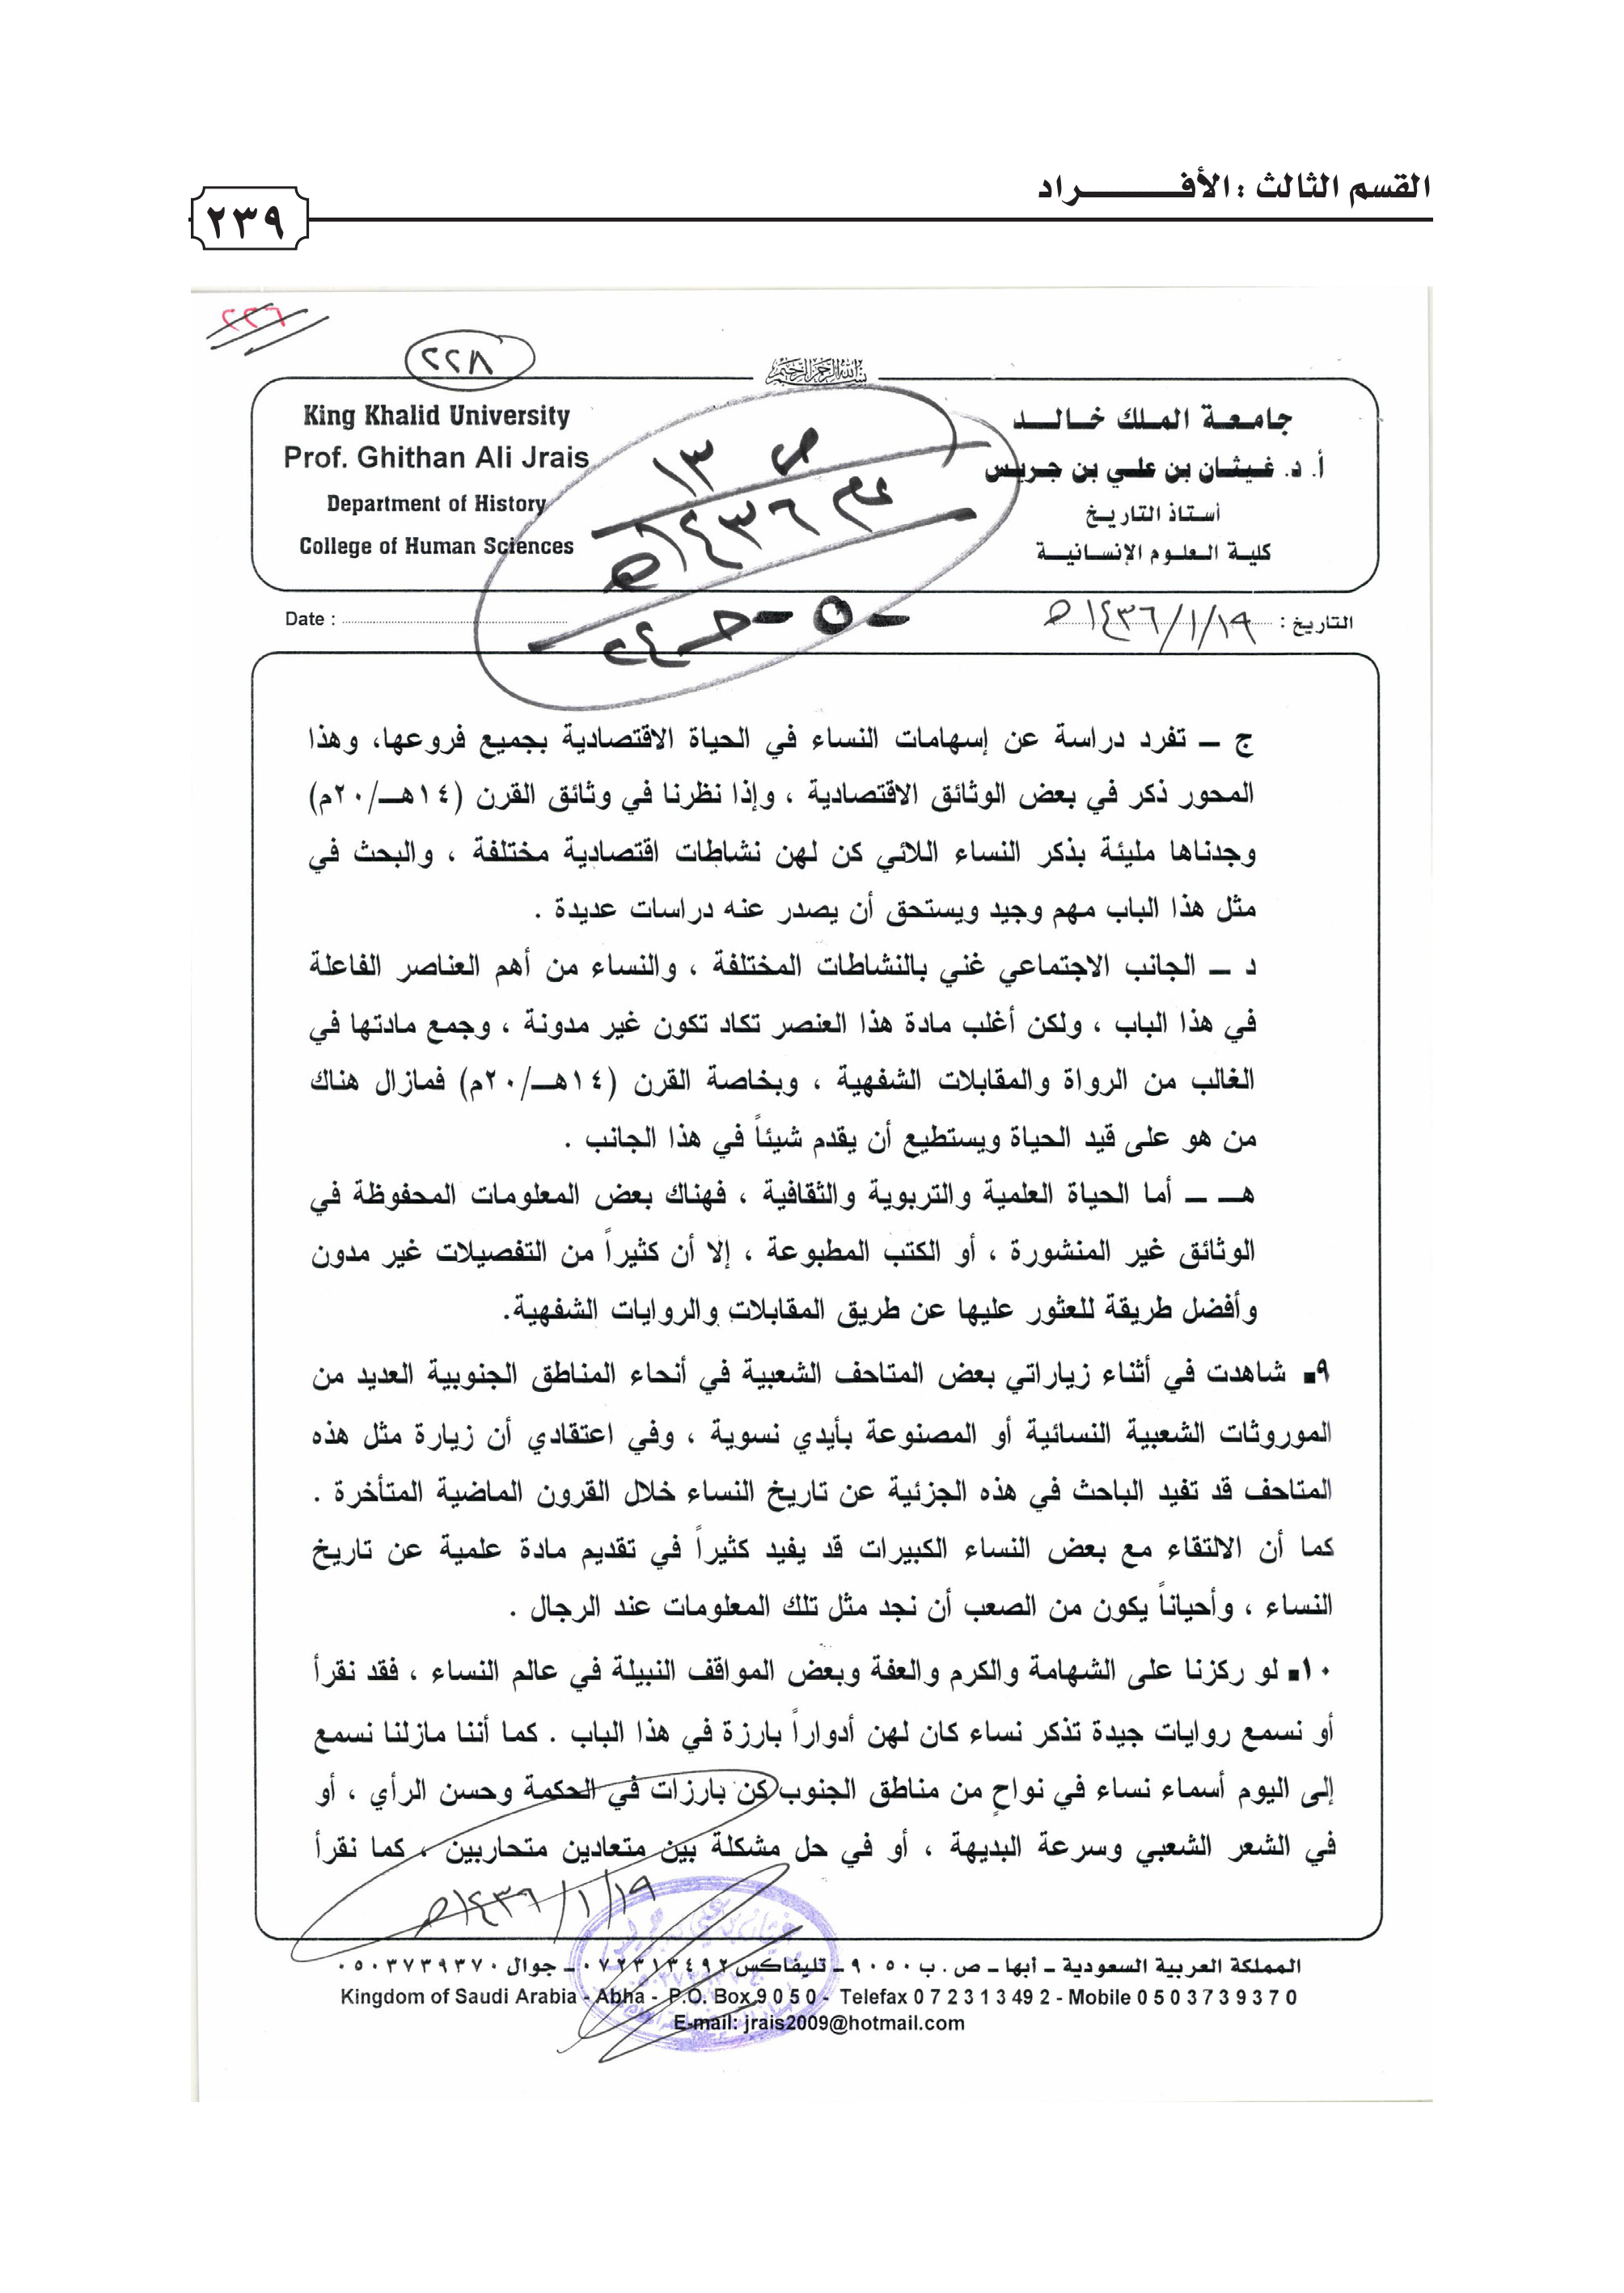 القسم الثالث : الأفـــــــراد
٢٣٩
٢٢٦
٢٢٨
جامعة الملك خالد
أ. د. غيثان بن علي بن جريس
أستاذ التاريخ
كلية العلوم الإنسانية
King Khalid University
Prof. Ghithan Ali Jrais
Department of History
College of Human Sciences
١٣
١٤٣٦هـ
- ٥ -
التاريخ : ١٤٣٦/١/١٩هـ
Date :
ج – تفرد دراسة عن إسهامات النساء في الحياة الاقتصادية بجميع فروعها، وهذا
المحور ذكر في بعض الوثائق الاقتصادية ، وإذا نظرنا في وثائق القرن (١٤هـ/٢٠م)
وجدناها مليئة بذكر النساء اللائي كن لهن نشاطات اقتصادية مختلفة ، والبحث في
مثل هذا الباب مهم وجيد ويستحق أن يصدر عنه دراسات عديدة .
د – الجانب الاجتماعي غني بالنشاطات المختلفة ، والنساء من أهم العناصر الفاعلة
في هذا الباب ، ولكن أغلب مادة هذا العنصر تكاد تكون غير مدونة ، وجمع مادتها في
الغالب من الرواة والمقابلات الشفهية ، وبخاصة القرن (١٤هـ/٢٠م) فمازال هناك
من هو على قيد الحياة ويستطيع أن يقدم شيئاً في هذا الجانب .
هـ – أما الحياة العلمية والتربوية والثقافية ، فهناك بعض المعلومات المحفوظة في
الوثائق غير المنشورة ، أو الكتب المطبوعة ، إلا أن كثيراً من التفصيلات غير مدون
وأفضل طريقة للعثور عليها عن طريق المقابلات والروايات الشفهية.
٩. شاهدت في أثناء زياراتي بعض المتاحف الشعبية في أنحاء المناطق الجنوبية العديد من
الموروثات الشعبية النسائية أو المصنوعة بأيدي نسوية ، وفي اعتقادي أن زيارة مثل هذه
المتاحف قد تفيد الباحث في هذه الجزئية عن تاريخ النساء خلال القرون الماضية المتأخرة .
كما أن الالتقاء مع بعض النساء الكبيرات قد يفيد كثيراً في تقديم مادة علمية عن تاريخ
النساء ، وأحياناً يكون من الصعب أن نجد مثل تلك المعلومات عند الرجال .
١٠. لو ركزنا على الشهامة والكرم والعفة وبعض المواقف النبيلة في عالم النساء ، فقد نقرأ
أو نسمع روايات جيدة تذكر نساء كان لهن أدواراً بارزة في هذا الباب . كما أننا مازلنا نسمع
إلى اليوم أسماء نساء في نواحٍ من مناطق الجنوب كن بارزات في الحكمة وحسن الرأي ، أو
في الشعر الشعبي وسرعة البديهة ، أو في حل مشكلة بين متعادين متحاربين ، كما نقرأ
١٤٣٦/١/١٩هـ
المملكة العربية السعودية – أبها – ص . ب ٩٠٥٠ – تليفاكس ٠٧٢٣١٣٤٩٢ – جوال ٠٥٠٣٧٣٩٣٧٠
Kingdom of Saudi Arabia - Abha - P.O. Box 9 0 5 0 - Telefax 0 7 2 3 1 3 49 2 - Mobile 0 5 0 3 7 3 9 3 7 0
E-mail: jrais2009@hotmail.com